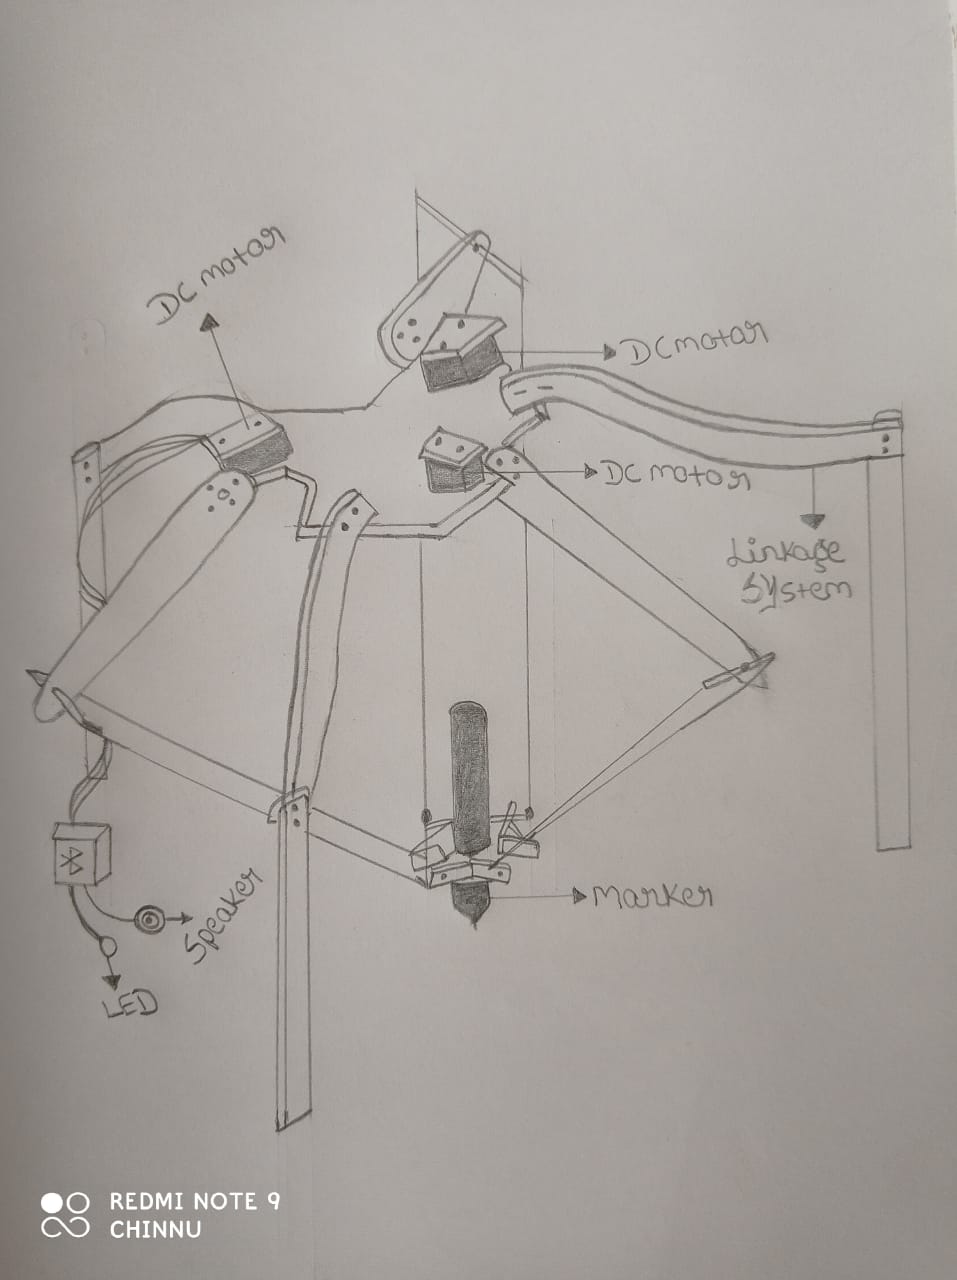 DC motor
DC motor
DC motor
Linkage
System
Marker
Speaker
LED
REDMI NOTE 9
CHINNU